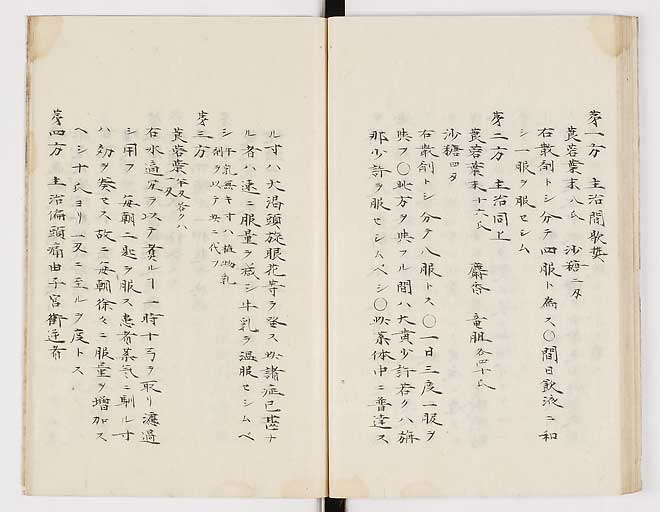 第一方　主治間歇熱
莨菪葉末八氏　沙糖二匁
右散剤トシ分テ四服ト為ス〇間日飲液ニ和
シ一服ヲ服セシム
第二方　主治同上
莨菪葉末十六氏　麝香　竜脳各四十氏
沙糖四匁
右散剤トシ分テ八服トス〇一日三度一服ヲ
与フ〇此方ヲ与フル間ハ大黄少許若クハ旃
那少許ヲ服セシムベシ〇此薬体中ニ普達ス
ル寸ハ大渇頭旋眼花等ヲ発ス此諸症已甚ナ
ル者ハ速ニ服量ヲ減シ牛乳ヲ温服セシムベ
シ牛乳無キ寸ハ植物乳
剤ヲ以テ之ニ代フ
第三方
莨菪葉半匁若クハ
一匁
右水適宜ヲ以テ煑ルヿ一時十弓ヲ取リ濾過
シ用フ　毎朝二匙ヲ服ス患者薬気ニ馴ル寸
ハ効ヲ発セス故ニ毎朝徐々ニ服量ヲ増加ス
ヘシ十氏ヨリ一匁ニ至ルヲ度トス
第四方　主治偏頭痛由子宮衝逆者